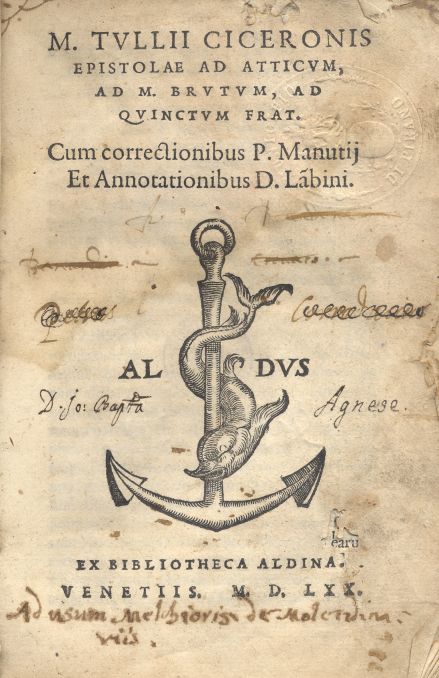 M. TVLLII CICERONIS
EPISTOLAE AD ATTICVM,
AD M. BRVTVM, AD
QVINCTVM FRAT.
Cum correctionibus P. Manutij
Et Annotationibus D. Lãbini.
AL DVS
D. Jo: Bapta Agnese.
earũ
EX BIBLIOTHECA ALDINA.
VENETIIS. M. D. LXX.
Ad usum Melchioris de Molendin
viis.